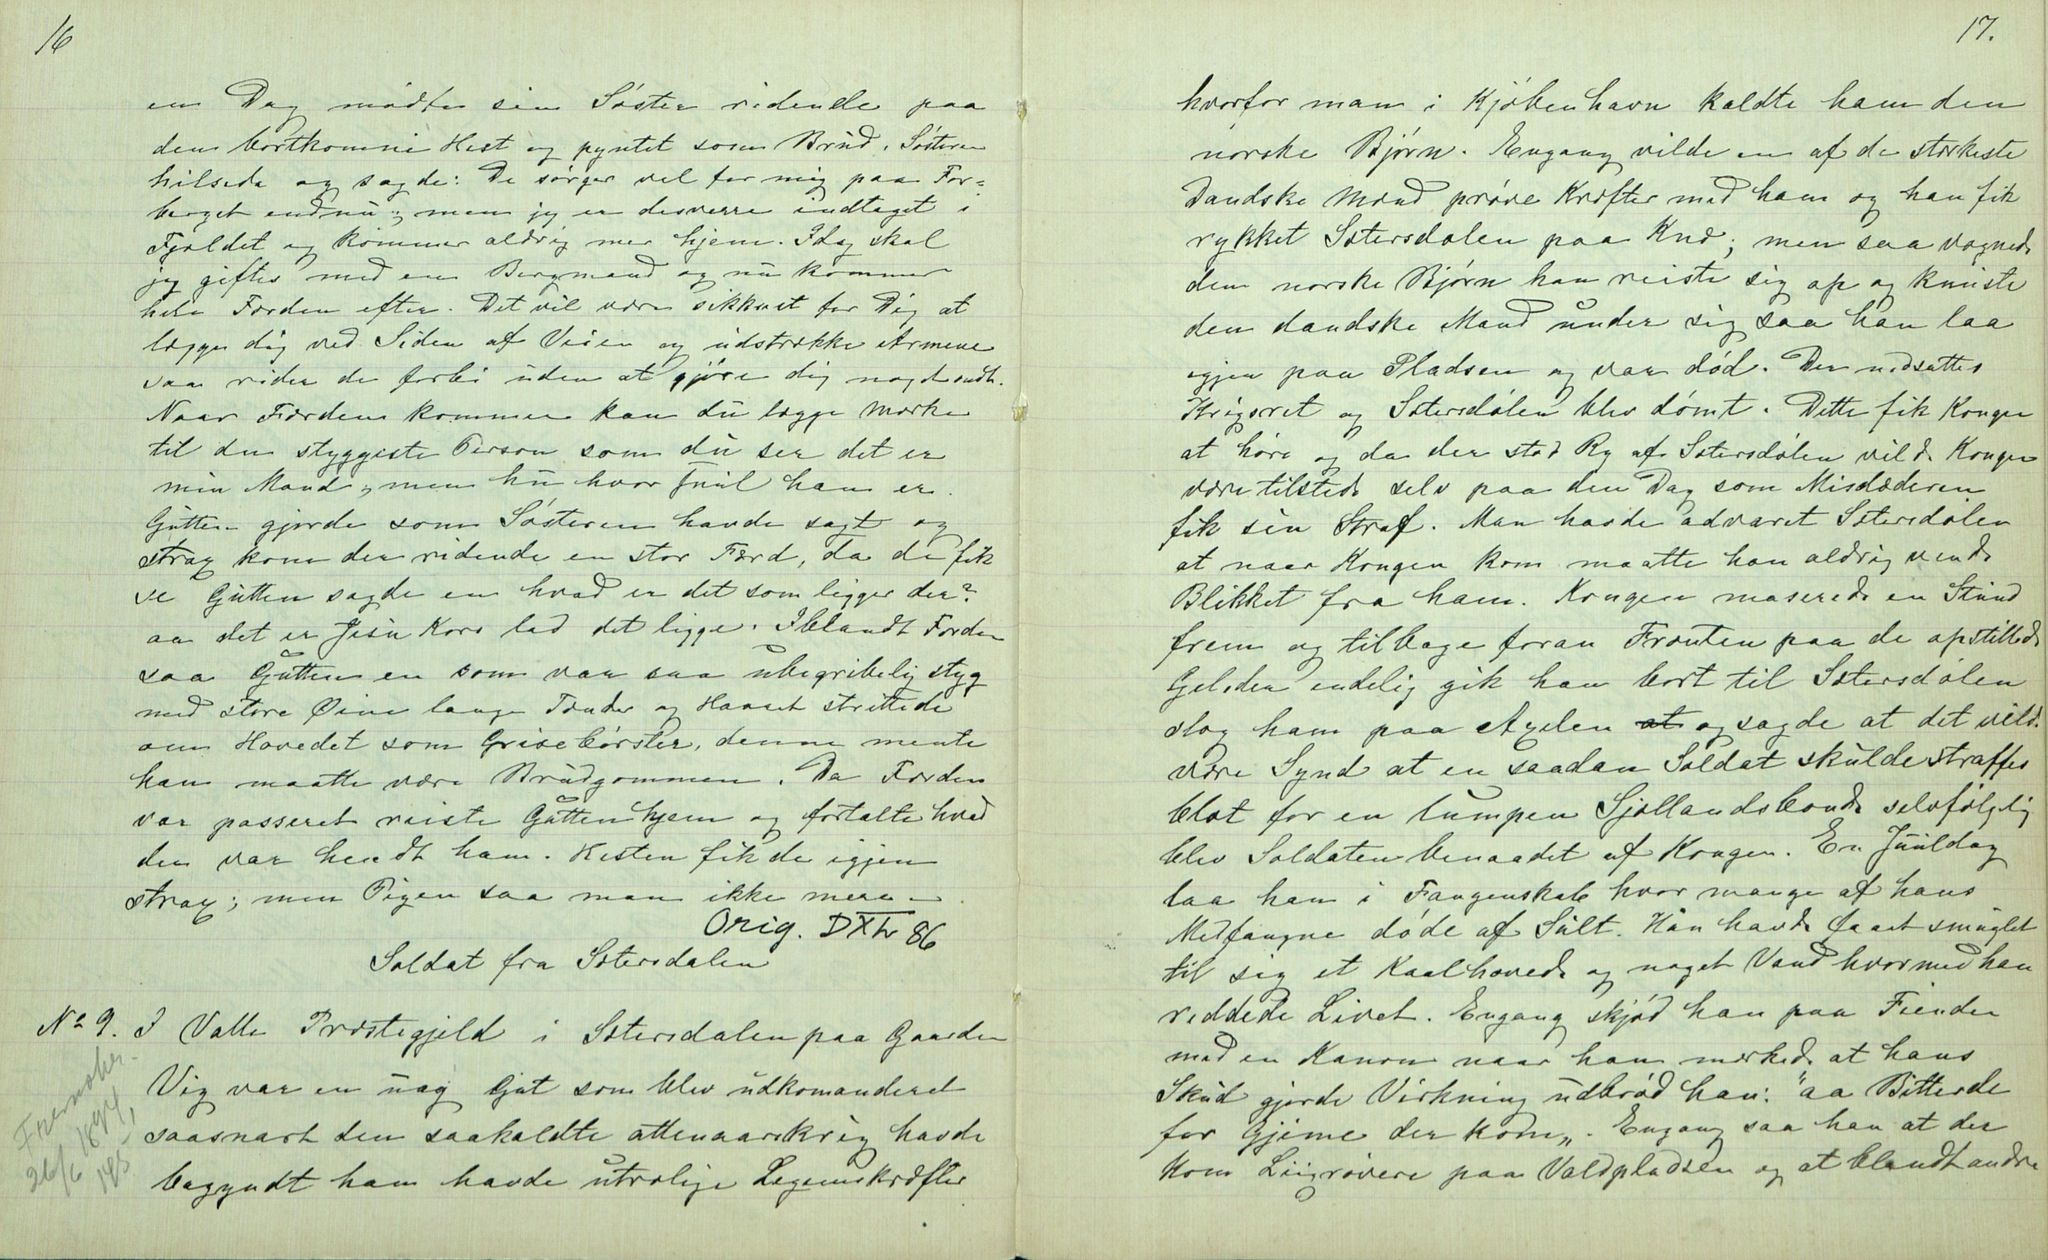 16
en Dag mødte sin Søster ridende paa
den bortkomne Hest og pyntet som Brud. Søsteren
hilsede og sagde: De sørger vel for mig paa For-
berget endnu; men jeg er desverre indtaget i
Fjeldet og kommer aldrig mer hjem. Idag skal
jeg giftes med en Bergmand og nu kommer
hele Færden efter. Det vil være sikkrest for Dig at
lægge dig ved Siden af Veien og udstrække Armene
saa rider de forbi uden at gjøre dig noget ondt.
Naar Færden kommer kan du lægge Mærke
til den styggeste Person som du ser det er
min Mand, men hu hvor fuul han er.
Gutten gjorde som Søsteren havde sagt og
strax kom der ridende en stor Færd, da de fik
se Gutten sagde en hvad er det som ligger der?
aa det er Jesu Kors lad det ligge. Iblandt Færden
saa Gutten en som var saa ubegribelig styg
med store Øine lange Tænder og Haaret strittede
om Hovedet som Grisebørster, denne mente
han maatte være Brudgommen. Da Færden
var passeret reiste Gutten hjem og fortalte hvad
der var hendt ham. Hesten fik de igjen
strax; men Pigen saa man ikke mere.
Orig. DXLV 86
Soldat fra Sætersdalen
No 9. I Valle Præstegjeld i Sætersdalen paa Gaarden
Vig var en ung Gut som blev udkomanderet
saasnart den saakaldte attenaarskrig havde
begyndt han havde utrolige Legemskræfter
26/6 1894,
17.
hvorfor man i Kjøbenhavn kaldte ham den
norske Bjørn. Engang vilde en af de stærkeste
Dandske Mænd prøve Kræfter med ham og han fik
rykket Sætersdølen paa Knæ; men saa vognede
den norske Bjørn han reiste sig op og knuste
den dandske Mand under sig saa han laa
igjen paa Pladsen og var død. Der nedsattes
Krigsret og Sætersdølen blev dømt. Dette fik Kongen
at høre og da der stod Ry af Sætersdølen vilde Kongen
være tilstede selv paa den Dag som Misdæderen
fik sin Straf. Man havde advaret Sætersdølen
at naar Kongen kom maatte han aldrig vende
Blikket fra ham. Kongen maserede en Stund
frem og tilbage foran Fronten paa de opstillede
Geleder endelig gik han bort til Sætersdølen
slog ham paa Axelen at og sagde at det vilde
være Synd at en saadan Soldat skulde straffes
blot for en lumpen Sjællandsbonde selvfølgelig
blev Soldaten benaadet af Kongen. En Juuldag
laa han i Fangenskab hvor mange af hans
Medfangne døde af Sult. Han havde faaet smuglet
til sig et Kaalhovede og noget Vand hvormed han
reddede Livet. Engang skjød han paa Fienden
med en Kanon naar han mærkede at hans
Skud gjorde Virkning udbrød han: "aa Bitterde
for Gjime der kom„. Engang saa han at der
kom Liigrøvere paa Valdpladsen og at blandt andre